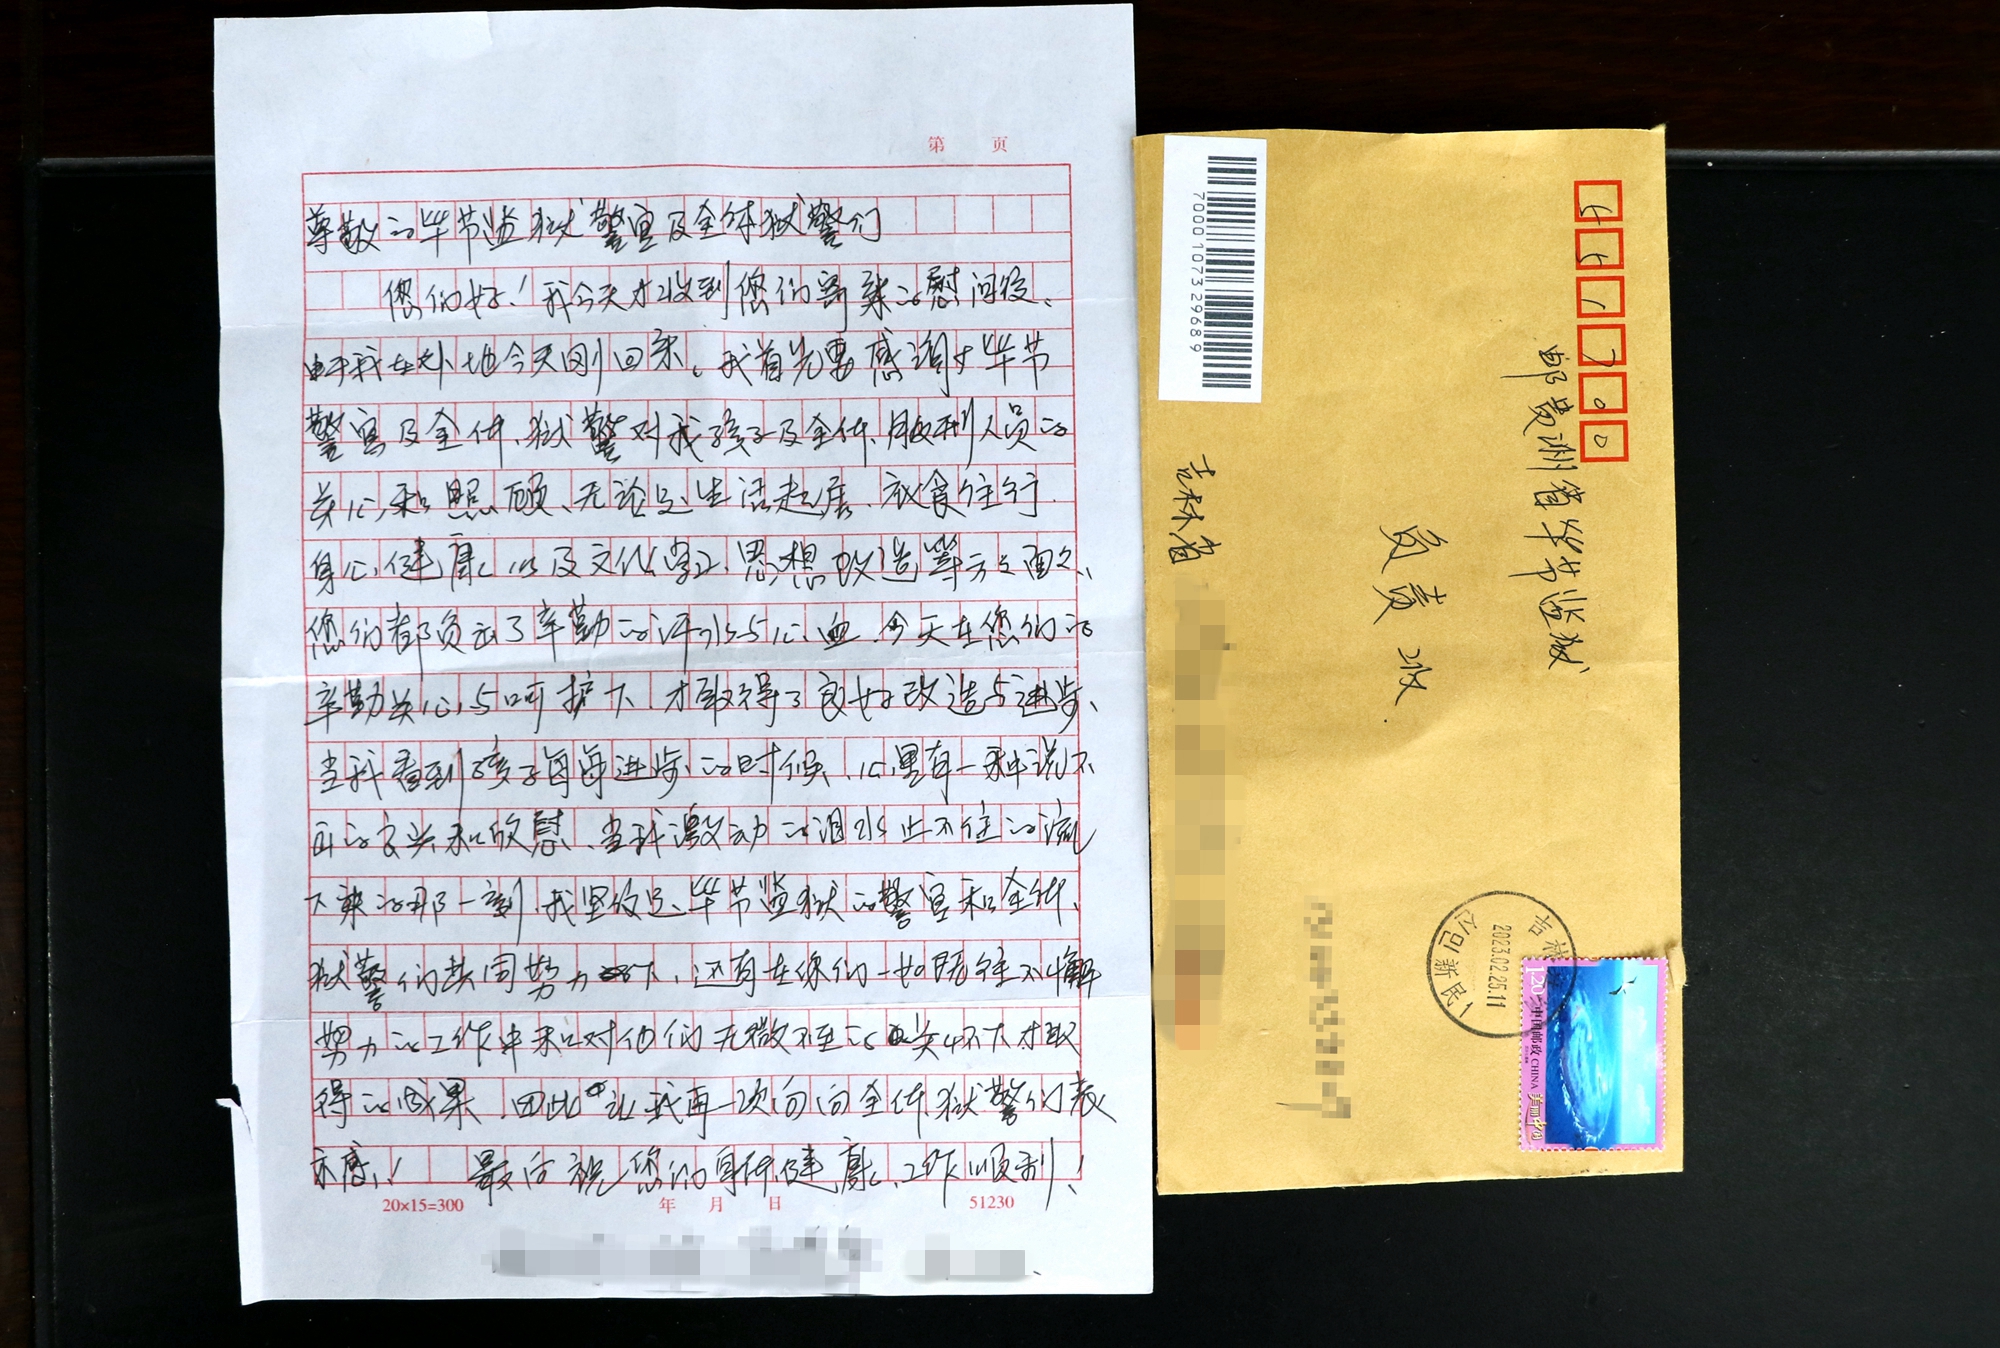 第 页
尊敬的毕节监狱警官及全体狱警们
您们好！我今天才收到您们寄来的慰问役、
由于我在外地今天刚回来。我首先要感谢 毕节
警官及全体、狱警对我孩子及全体、服刑人员的
关心和照顾、无论是、生活起居、衣食住行
身心健康 以及文化学习、思想改造等方方面面、
您们都负出了辛勤的汗水与心血 今天在您们的
辛勤关心与呵护下 才取得了良好改造与进步、
当我看到孩子每每进步、的时候、心里有一种说不
出的高兴和欣慰、当我激动的泪水止不住的流
下来的那一刻 我坚信是、毕节监狱的警官和全体、
狱警们共同努力 下、还有在你们一如既往不懈
努力的工作中和对他们无微不至的 关怀下才取
得的成果 因此 让我再一次向向全体狱警们表
示感 ！ 最后祝您们身体健康、工作顺利！
20×15=300 年 月 日 51230
7000 1073296689
551700
邮贵洲省毕节监狱
负责 收
吉林省
吉林
2023.02.25.11
新民
1.20元 中国邮政 CHINA 美丽中国